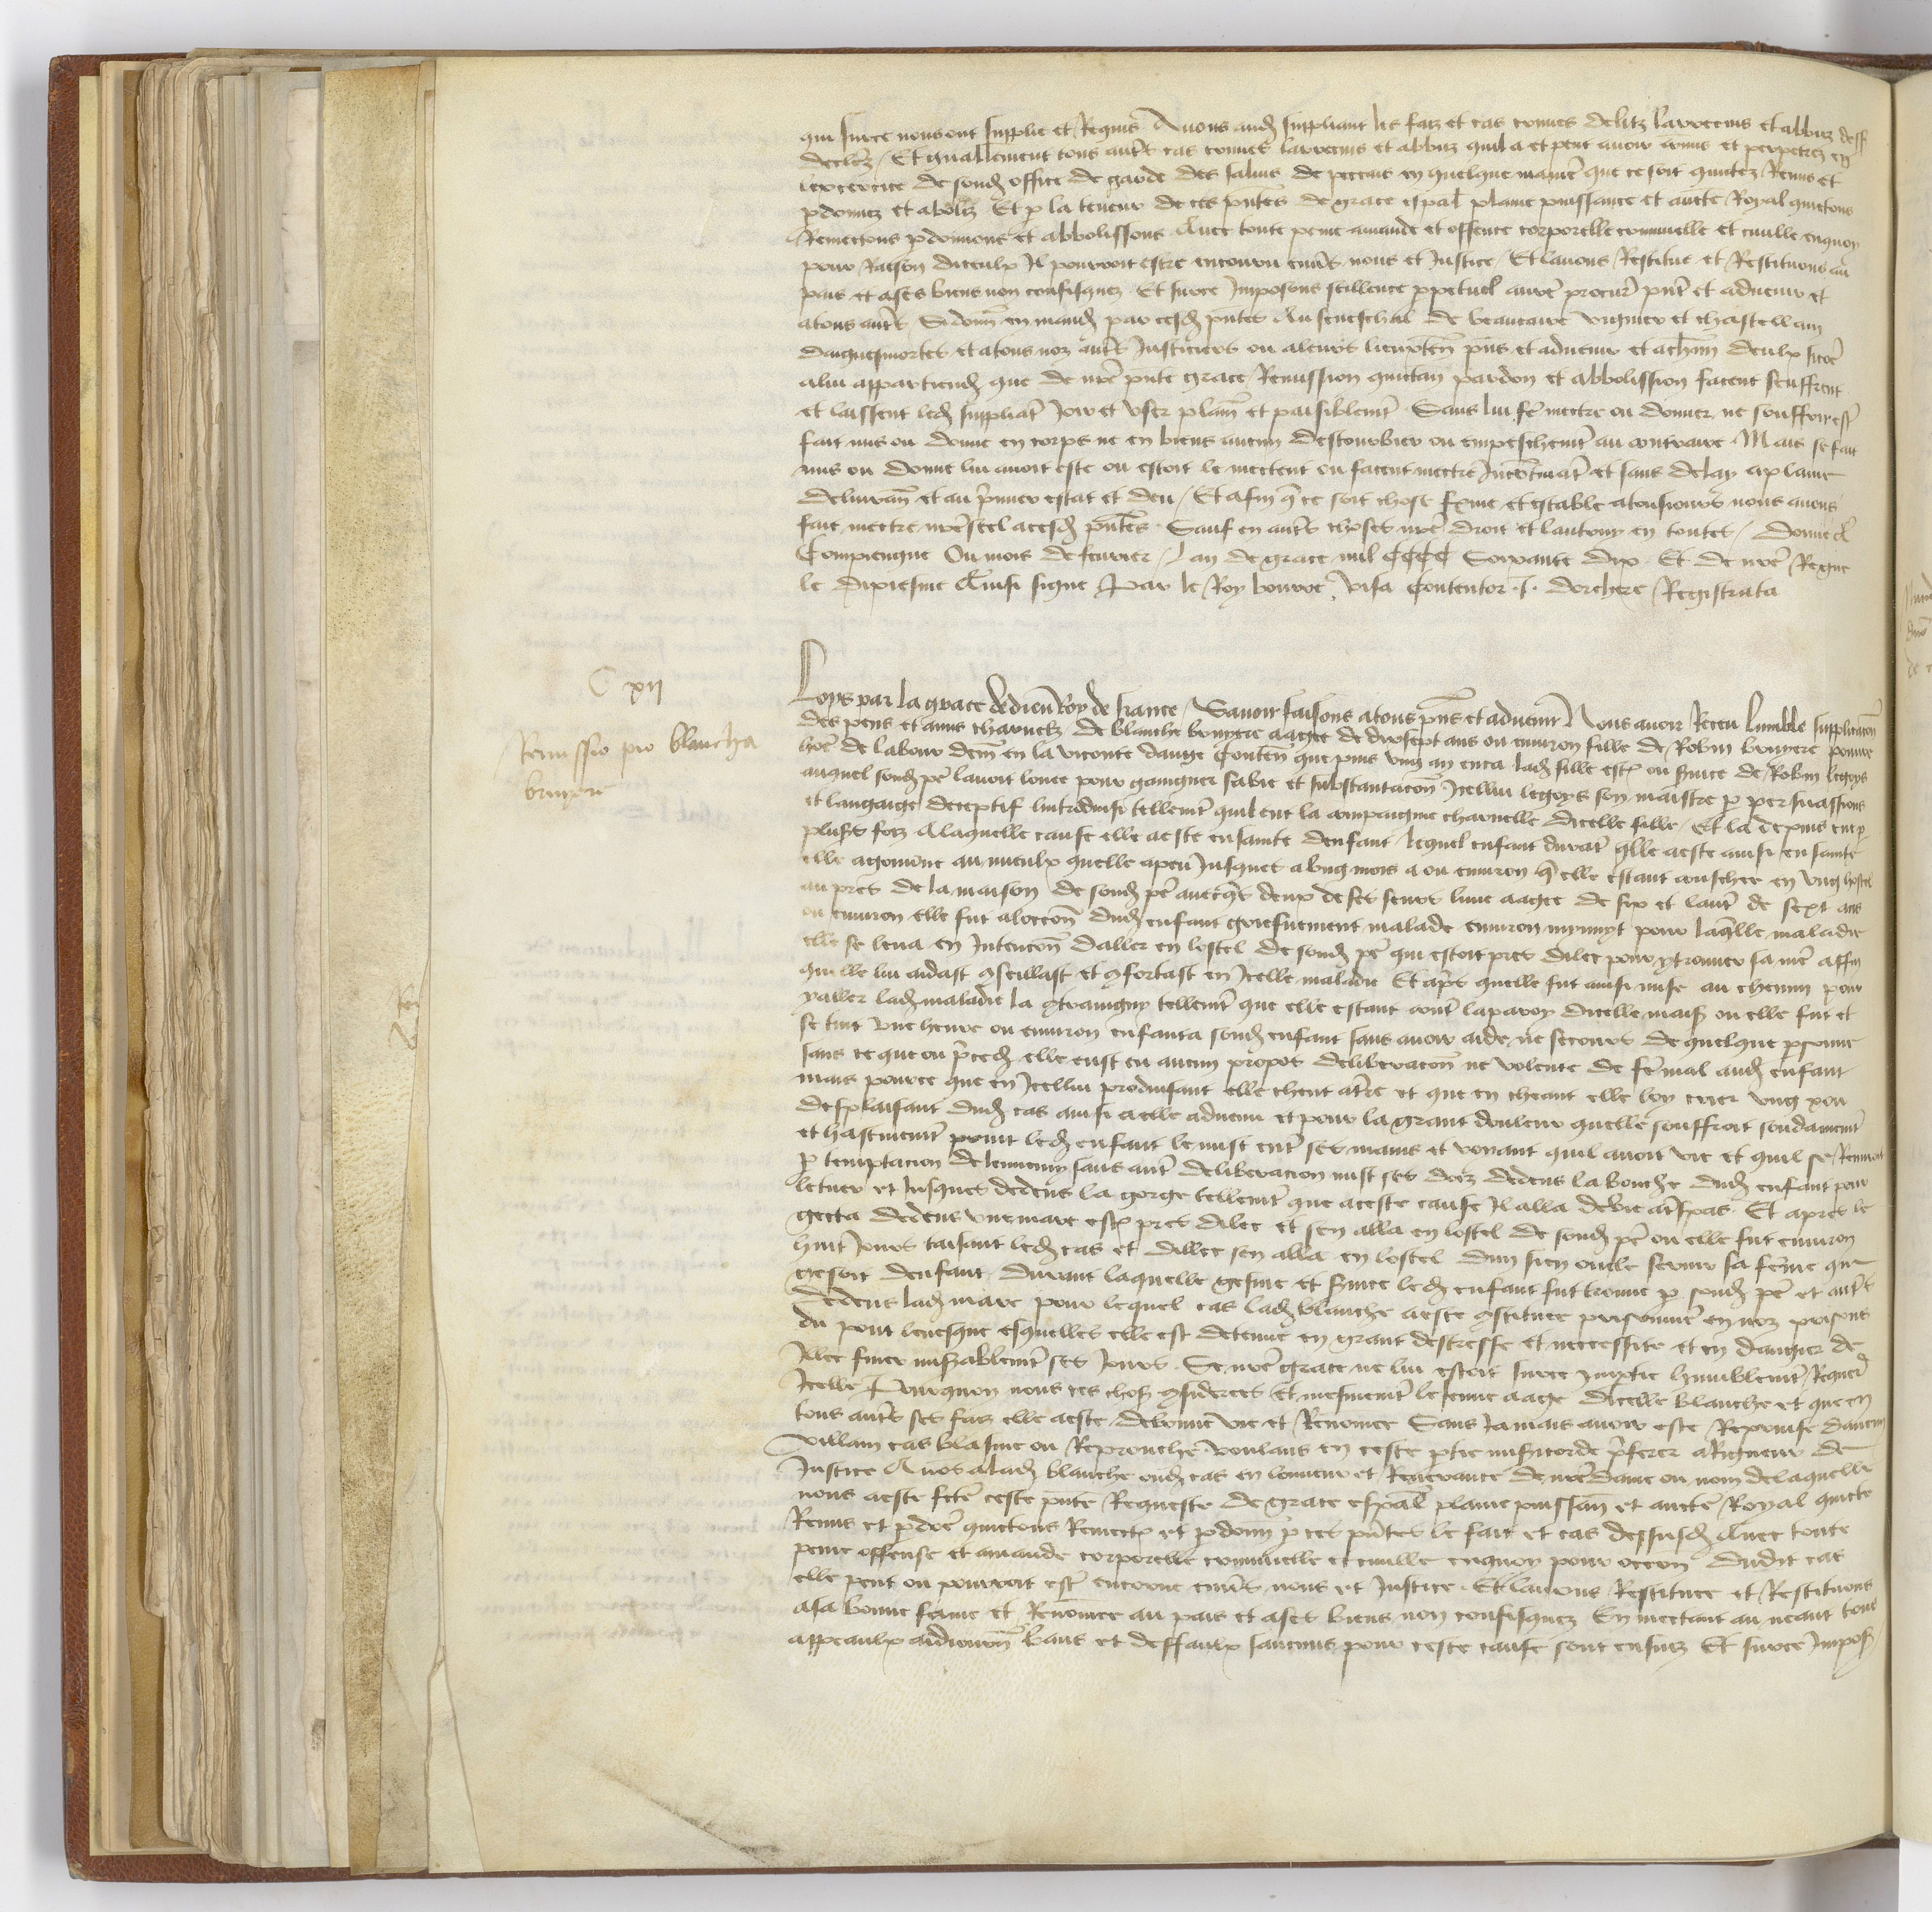 qui surce nous ont supplie et Requis Avons aud suppliant les faiz et cas crimes delitz larrecins et abbuz dess
declerez / Et gnallement tous autres cas crimes larrecins et abbuz quil a et peut avoir comis et perpetrez en
lexercice de sond office de garde des salins de peccais en quelque maniere que ce soit quictez Remis et
pdonnez et aboliz Et p la teneur de ces pntes de grace espal plaine puissance et aucte Royal quictons
Remectons pdonnons et abbolissons Avec toute peine amande et offence corporelle criminelle et civille enquoy
pour Raison diceulx Il pourroit estre encouru envers nous et Justice / Et lavons Restitue et Restituons au
pais et a ses biens non confisquez Et surce Imposons scillence ppetuel a nre procur pnt et advenir et
atous autres Si donn en mand par cesd pntes Au seneschal de beaucaire viguier et chastellain
daiguesmortes et atous noz autres Justiciers ou aleurs lieuxten pns et advenir et achun deulx sicoe
alui appartiend que de nre pnte grace Remission quictan pardon et abbolission facent seuffrent
et laissent led suppliat Joir et vser plain et paisiblemt Sans lui fe mectre ou donner ne souffrir est
fait mis ou donne en corps ne en biens aucun destourbier ou empeschemt au contraire Mais se fait
mis ou donne lui avoit este ou estoit le mectent ou facent mectre Incontinat et sans delay aplaine
delivran et au prmier estat et deu / Et afin q ce soit chose ferme et estable atousiours nous avons
fait mectre nre seel acesd pntes Sauf en autres choses nre droit et lautruy en toutes / Donne a
Compiengne Ou mois de fevrier / Lan de grace mil CCCC Soixante dix Et de nre Regne
le dixiesme Ainsi signe Par le Roy bourre visa Contentor J dorchere Registrata
C xii
Remissio pro blancha
bruyere
Loys par la grace de dieu Roy de france / Savoir faisons atous pns et advenir Nous avoir Receu lumble supplicacon
des pens et amis charnelz de blanche bruyere aagee de dixsept ans ou environ fille de Robin bruyere povure
hoe de labour dem en la viconte dauge Conten que puis vng an enca lad fille estt ou svice de Robin legoys
auquel sond pe lavoit louee pour gaingner sa vie et substantacon Icellui legoys son maistre p persuassions
et langaige deceptif lintroduisi tellemt quil eut la compengnie charnelle dicelle fille / Et la depuis eue p
plusrs foiz A laquelle cause elle a este ensainte denfant / lequel enfant durat qlle a este ainsi ensainte
elle agouverne au mieulx quelle apeu Jusques a vng mois a ou environ q elle estant couschee en vng hostel
au pres de la maison de sond pe avecqs deux de ses seurs lune aagee de six et laut de sept ans
ou environ elle fut aloccon dud enfant griefuement malade environ mynuyt pour laqlle maladie
elle se leva en Intencon daller en lostel de sond pe qui estoit pres dilec pour y trouver sa me affin
quelle lui aidast conseillast et confortast en Icelle maladie Et apres quelle fut ainsi mise au chemin pour
y aller lad maladie la contraigny tellemt que elle estant cont laparoy dicelle mais ou elle fut et
se tint vne heure ou environ enfanta sond enfant sans avoir aide ne secours de quelque psonne
sans ce que ou preced elle eust eu aucun propos deliberacon ne volente de fe mal aud enfant
mais pource que en Icellui produisant elle cheut atre et que en cheant elle loy crier vng pou
desplaisant dud cas ainsi aelle advenu et pour la grant douleur quelle souffroit soudainemt
et hastivemt print led enfant le mist ent ses mains et voyant quil avoit vie et quil se Remuoit
p temptacion de lennemy sans aut deliberacion mist ses doiz dedens la bouche dud enfant pour
le tuer et Jusques dedens la gorge tellemt que aceste cause Il alla de vie atrespas Et apres le
gecta dedens vne mare estt pres dilec et sen alla en lostel de sond pe ou elle fut environ
huit Jours taisant led cas et dillec sen alla en lostel dun sien oncle servir sa feme qui
gesoit denfant / Durant laquelle gesine et svice led enfant fut trouve p sond pe et autres
dedens lad mare pour lequel cas lad blanche a este constituee prisonniere en noz prisons
du pont levesque esquelles elle est detenue en grant destresse et neccessite et en dangier de
Illec finer misablemt ses Jours Se nre grace ne lui estoit surce impartie humblemt Requer
Icelle Pourquoy nous ces chos considerees et mesmemt le jeune aage dicelle blanche et que en
tous autres ses faiz elle a este de bonne vie et Renomee Sans Jamais avoir este Reprinse daucun
villain cas blasme ou Reprouche voulans en ceste ptie misicorde prefer a Rigueur de
Justice Avos alad blanche oud cas en lonneur et Reverance de nre dame ou nom de laquelle
nous a este fcte ceste pnte Requeste de grace espal plaine puissan et aucte Royal quicte
Remis et pdoe quictons Remectt et pdonn p ces pntes le fait et cas dessusd Avec toute
peine offense et amande corporelle criminelle et civille enquoy pour occon dudit cas
elle peut ou pourroit est encorue envers nous et Justice Et lavons Restituee et Restituons
asa bonne fame et Renomee au pais et ases biens non confisquez En mectant au neant tous
appeaulx adiournem bans et deffaulx saucuns pour ceste cause sont ensuiz Et surce Impos